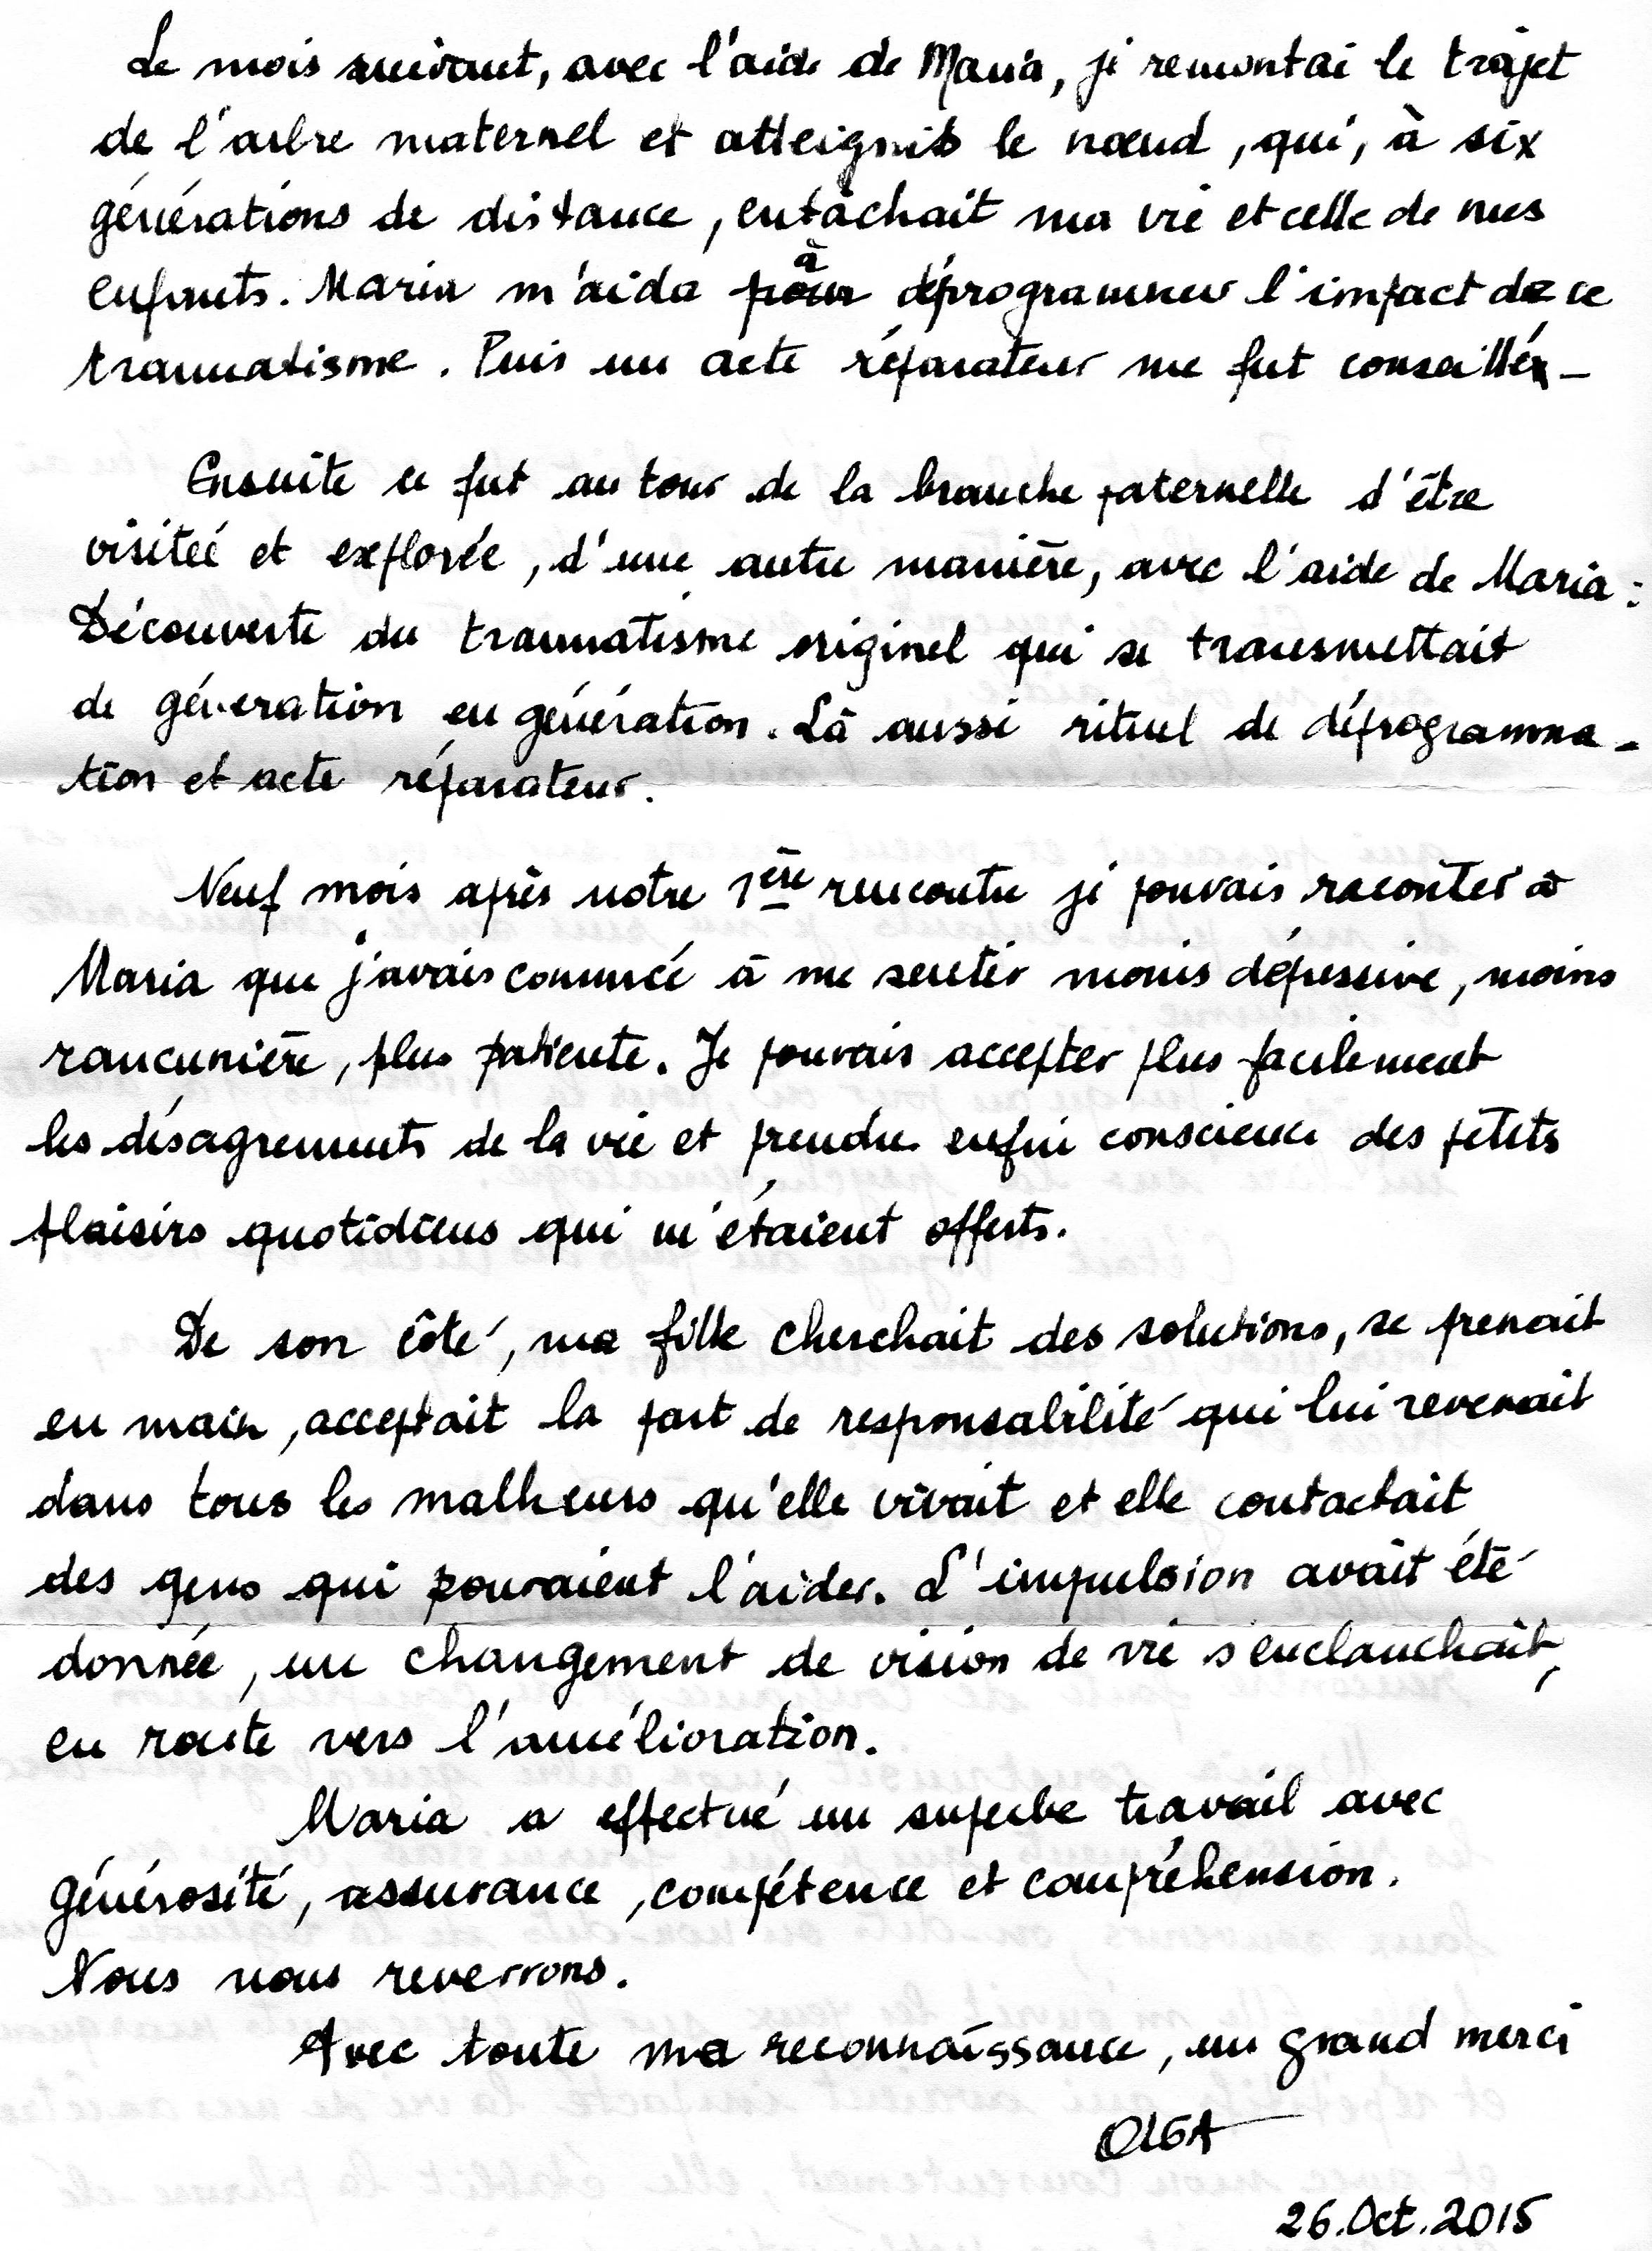 Le mois suivant, avec l'aide de Maria, je remontai le trajet
de l'arbre maternel et atteignis le nœud, qui, à six
générations de distance, entachait ma vie et celle de mes
enfants. Maria m'aida à déprogrammer l'impact de ce
traumatisme. Puis un acte réparateur me fut conseillé.
Ensuite ce fut au tour de la branche paternelle d'être
visitée et explorée, d'une autre manière, avec l'aide de Maria :
Découverte du traumatisme originel qui se transmettait
de géneration en génération. Là aussi rituel de déprogramma-
tion et acte réparateur.
Neuf mois après notre 1ère rencontre je pouvais raconter à
Maria que j'avais commncé à me sentir moins dépressive, moins
rancunière, plus patiente. Je pouvais accepter plus facilement
les désagrements de la vie et prendre enfin conscience des petits
plaisirs quotidiens qui m'étaient offerts.
De son côté, ma fille cherchait des solutions, se prenait
en main, acceptait la part de responsabilité qui lui revenait
dans tous les malheurs qu'elle vivait et elle contactait
des gens qui pouvaient l'aider. L'impulsion avait été
donnée, un changement de vision de vie s'enclanchait,
en route vers l'amélioration.
Maria a effectué un superbe travail avec
générosité, assurance, compétence et compréhension.
Nous nous reverrons.
Avec toute ma reconnaissance, un grand merci
OLGA
26.Oct.2015